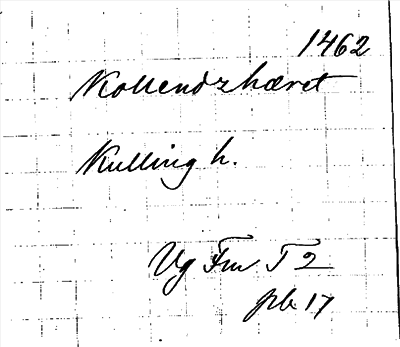 1462
Kollendzhæret
Kulling h.
Vg Fm T 2
pb 17